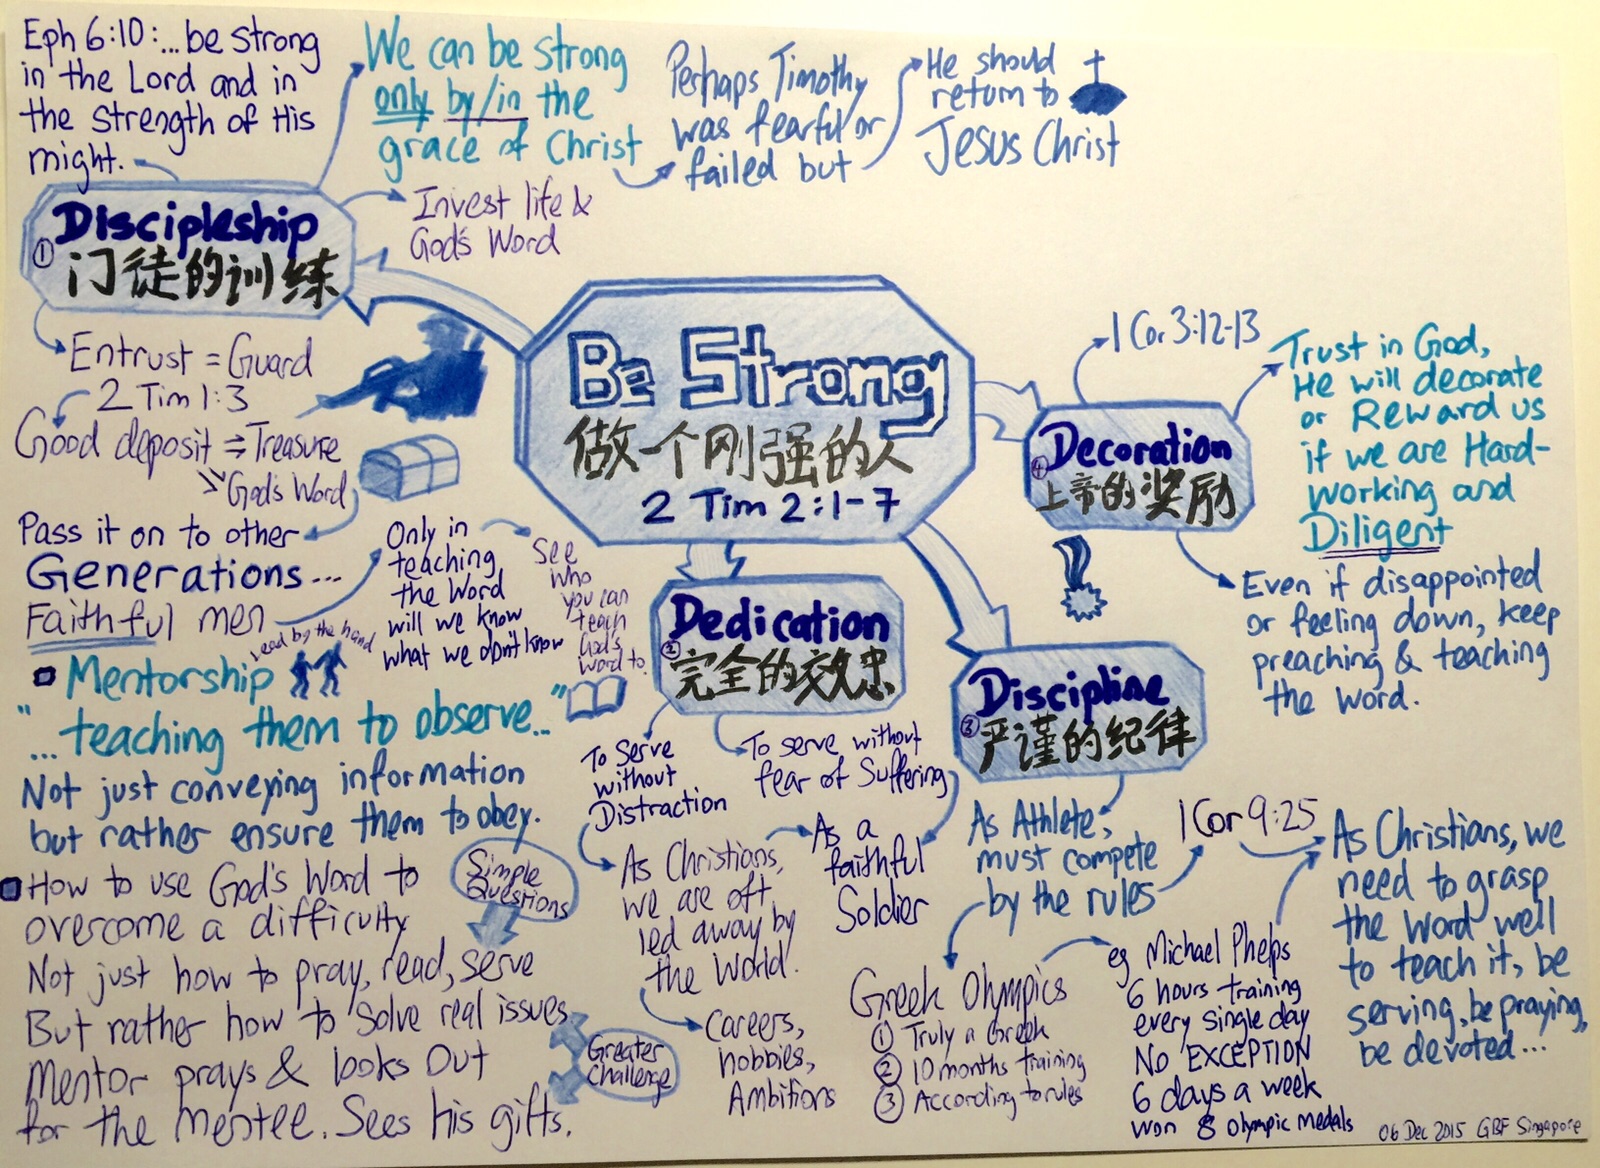 Eph 6:10:...be strong
in the Lord and in
the strength of His
might.
We can be strong
only by/in the
grace of Christ
Perhaps Timothy
was fearful or
failed but
He should
return to
Jesus Christ
① Discipleship
门徒的训练
Invest life &
God's Word
Entrust = Guard
2 Tim 1:3
Good deposit = Treasure
God's Word
Pass it on to other
Generations...
Faithful men
Only in
teaching
the Word
will we know
what we don't know
See
who
you can
teach
God's
word to
Lead by the hand
Mentorship
"...teaching them to observe..."
Not just conveying information
but rather ensure them to obey.
How to use God's Word to
overcome a difficulty
Simple
Questions
Not just how to pray, read, serve
But rather how to solve real issues
Greater
Challenge
Mentor prays & looks out
for the mentee. Sees his gifts.
Be Strong
做一个刚强的人
2 Tim 2:1-7
② Dedication
完全的效忠
To Serve
without
Distraction
As Christians,
we are oft
led away by
the World.
Careers,
hobbies,
Ambitions
To serve without
fear of Suffering
As a
faithful
Soldier
③ Discipline
严谨的纪律
As Athlete,
must compete
by the rules
1 Cor 9:25
Greek Olympics
① Truly a Greek
② 10 months training
③ According to rules
eg Michael Phelps
6 hours training
every single day
NO EXCEPTION
6 days a week
won 8 Olympic Medals
As Christians, we
need to grasp
the Word well
to teach it, be
serving, be praying,
be devoted...
④ Decoration
上帝的奖励
1 Cor 3:12-13
Trust in God,
He will decorate
or Reward us
if we are Hard-
working and
Diligent
Even if disappointed
or feeling down, keep
preaching & teaching
the Word.
06 Dec 2015 GBF Singapore